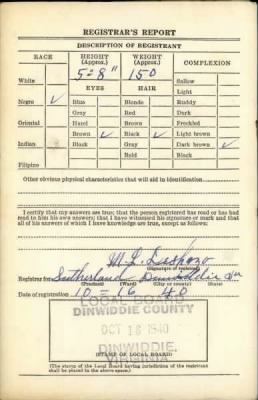 REGISTRAR'S REPORT
DESCRIPTION OF REGISTRANT
RACE HEIGHT (Approx.) WEIGHT (Approx.) COMPLEXION
5-8" 150
White Sallow
EYES HAIR Light
Negro ✓ Blue Blonde Ruddy
Gray Red Dark
Oriental Hazel Brown Freckled
Brown ✓ Black ✓ Light brown
Indian Black Gray Dark brown ✓
Bald Black
Filipino
Other obvious physical characteristics that will aid in identification
I certify that my answers are true; that the person registered has read or has had
read to him his own answers; that I have witnessed his signature or mark and that
all of his answers of which I have knowledge are true, except as follows:
(Signature of registrar)
Registrar for Sutherland Dinwiddie
(Precinct) (Ward) (City or county) (State)
Date of registration 10 16 40
LOCAL BOARD
DINWIDDIE COUNTY
OCT 16 1940
DINWIDDIE,
VIRGINIA
(STAMP OF LOCAL BOARD)
(The stamp of the Local Board having jurisdiction of the registrant
shall be placed in the above space.)